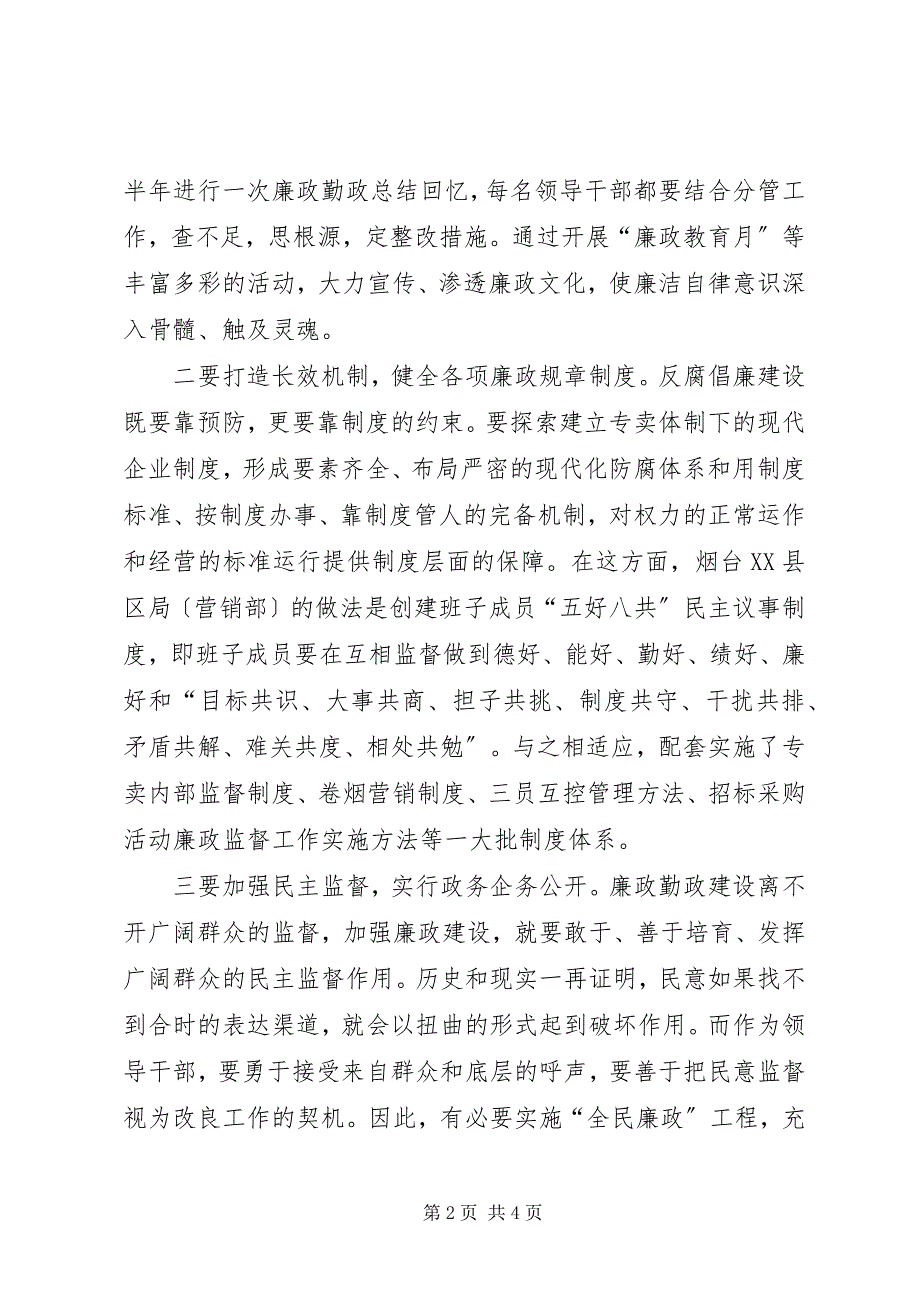 半年进行一次廉政勤政总结回忆，每名领导干部都要结合分管工
作，查不足，思根源，定整改措施。通过开展“廉政教育月〞等
丰富多彩的活动，大力宣传、渗透廉政文化，使廉洁自律意识深
入骨髓、触及灵魂。
二要打造长效机制，健全各项廉政规章制度。反腐倡廉建设
既要靠预防，更要靠制度的约束。要探索建立专卖体制下的现代
企业制度，形成要素齐全、布局严密的现代化防腐体系和用制度
标准、按制度办事、靠制度管人的完备机制，对权力的正常运作
和经营的标准运行提供制度层面的保障。在这方面，烟台 XX 县
区局〔营销部〕的做法是创建班子成员“五好八共〞民主议事制
度，即班子成员要在互相监督做到德好、能好、勤好、绩好、廉
好和“目标共识、大事共商、担子共挑、制度共守、干扰共排、
矛盾共解、难关共度、相处共勉〞。与之相适应，配套实施了专
卖内部监督制度、卷烟营销制度、三员互控管理方法、招标采购
活动廉政监督工作实施方法等一大批制度体系。
三要加强民主监督，实行政务企务公开。廉政勤政建设离不
开广阔群众的监督，加强廉政建设，就要敢于、善于培育、发挥
广阔群众的民主监督作用。历史和现实一再证明，民意如果找不
到合时的表达渠道，就会以扭曲的形式起到破坏作用。而作为领
导干部，要勇于接受来自群众和底层的呼声，要善于把民意监督
视为改良工作的契机。因此，有必要实施“全民廉政〞工程，充
第 2 页 共 4 页